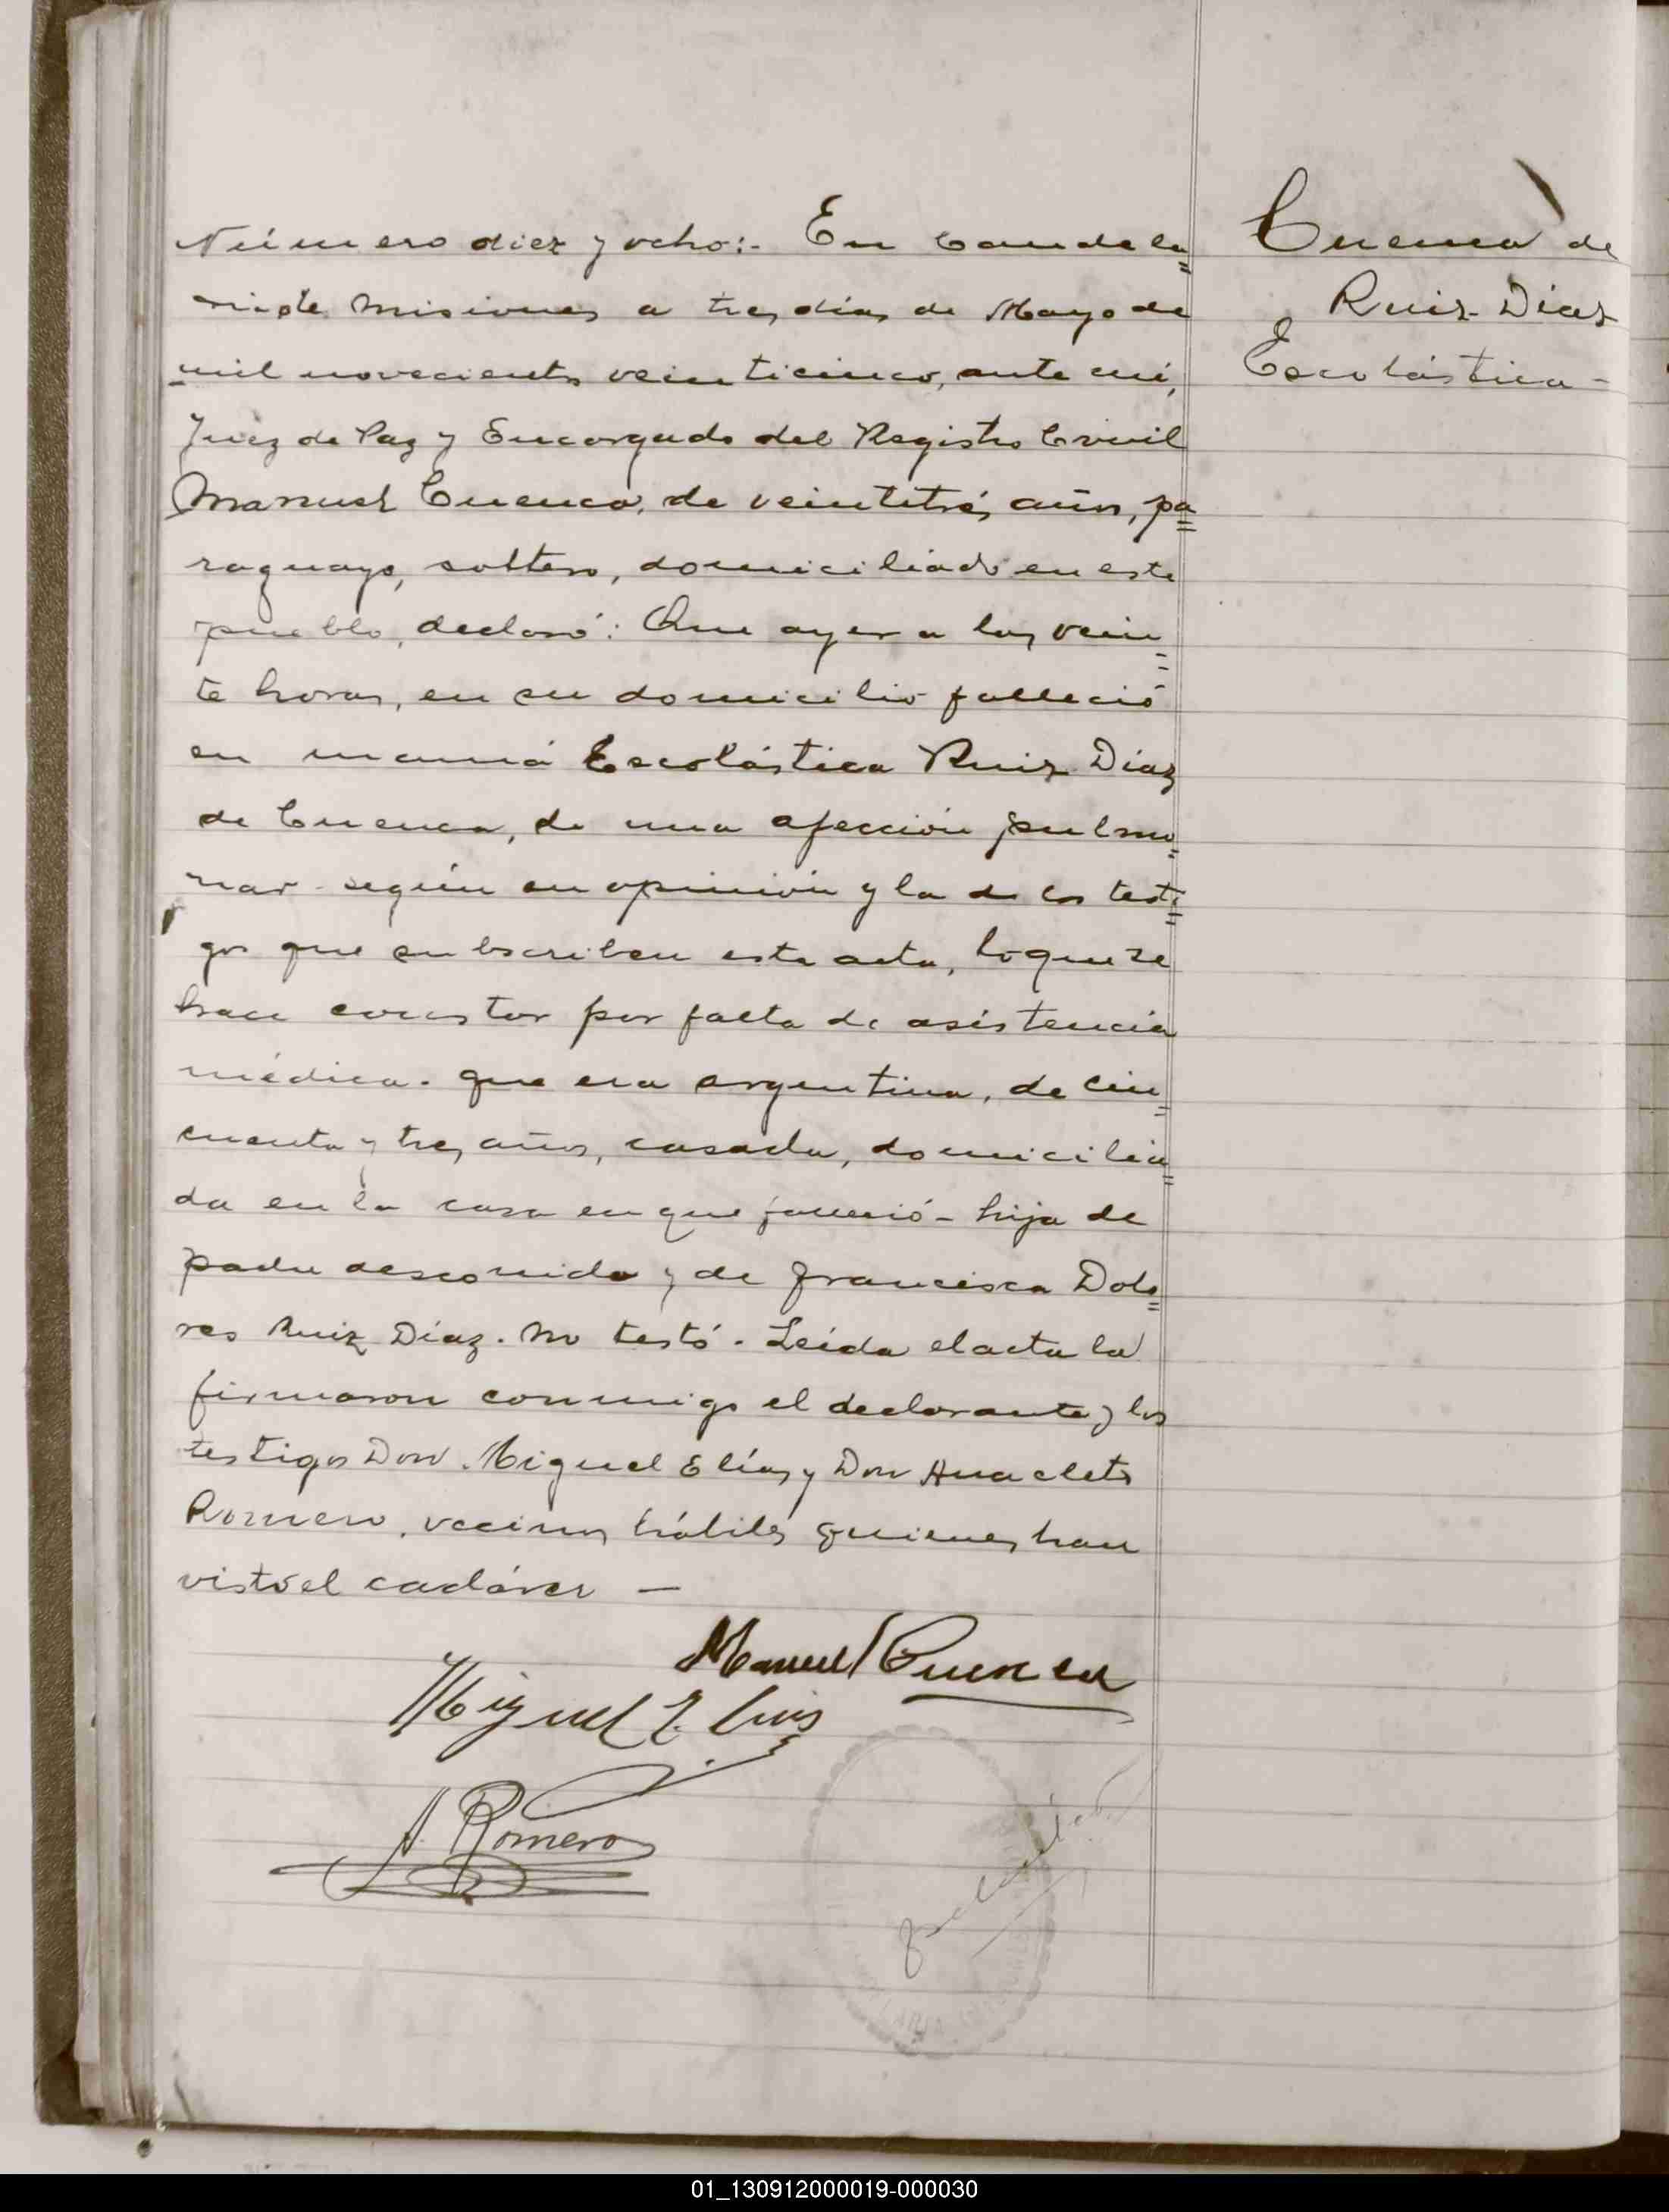 Número diez y ocho:- En Candela=
ria de Misiones a tres días de Mayo de
mil novecientos veinticinco, ante mí,
Juez de Paz y Encargado del Registro Civil
Manuel Cuenca, de veintitrés años, pa=
raguayo, soltero, domiciliado en este
pueblo, declaró: Que ayer a las vein=
te horas, en su domicilio falleció
su mamá Escolástica Ruiz Díaz
de Cuenca, de una afección pulmo=
nar según su opinión y la de los testi=
gos que subscriben esta acta, lo que se
hace constar por falta de asistencia
médica. que era argentina, de cin=
cuenta y tres años, casada, domicilia=
da en la casa en que falleció - hija de
padre desconocido y de Francisca Dolo=
res Ruiz Díaz. No testó. Leída el acta la
firmaron conmigo el declarante y los
testigos Don Miguel Elías y Don Anacleto
Romero, vecinos hábiles quienes han
visto el cadáver —
Cuenca de
Ruiz Díaz
Escolástica -
Manuel Cuenca
Miguel Elias
A. Romero
01_130912000019-000030